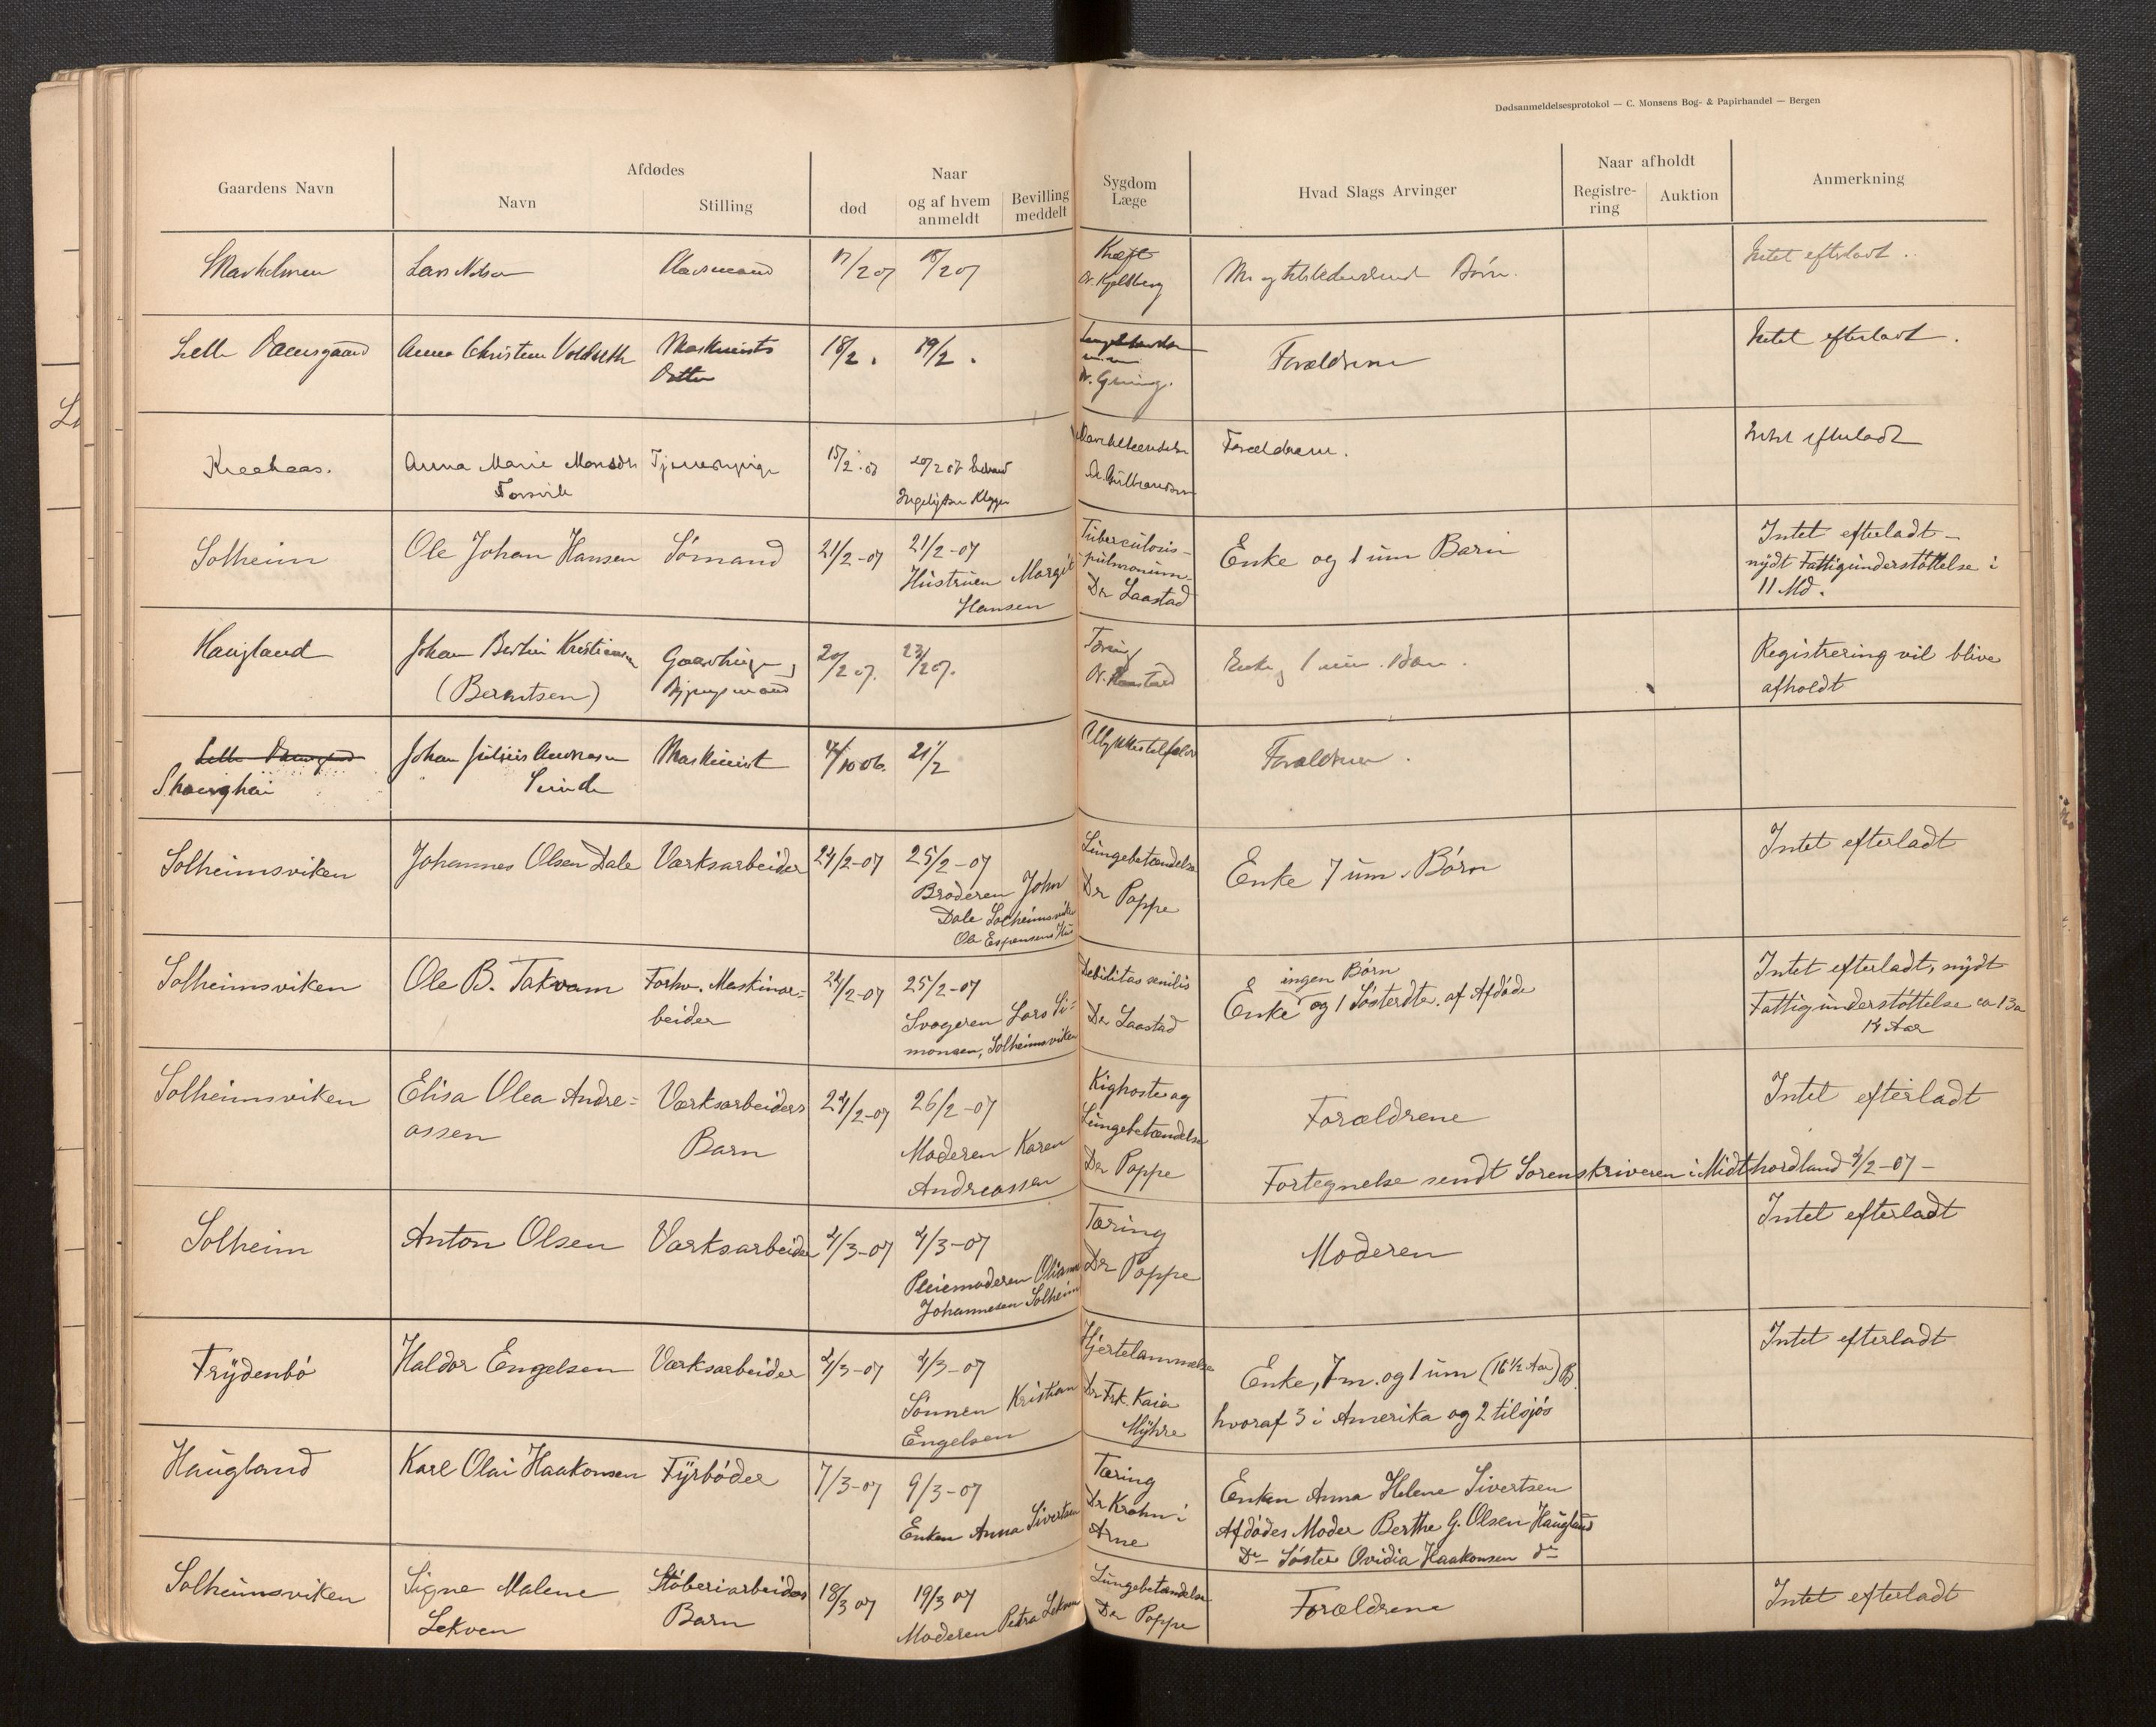 Dødsanmeldelsesprotokol — C. Monsens Bog- & Papirhandel — Bergen
Gaardens Navn
Afdødes
Navn
Stilling
Naar
død
og af hvem
anmeldt
Bevilling
meddelt
Sygdom
Læge
Hvad Slags Arvinger
Naar afholdt
Registre-
ring
Auktion
Anmerkning
Lars 17/2 07 18/2 07 Kræft Børn. Intet efterladt.
Dr. Kjeldberg
Lille Damsgaard Anna Christine Maskinists 18/2. 19/2. Forældrene Intet efterladt.
Datter
Dr. Grung.
Kraakaas. Anna Marie Monsdtr Tjenestepige 15/2.07 20/2 07 Forældrene. Intet efterladt
Dr. Gulbrandsen
Solheim Ole Johan Hansen Sömand 21/2-07 21/2-07 Tuberculosis- Enke og 1 um Barn Intet efterladt-
Hustruen Margit pulmonum- nydt Fattigunderstöttelse i
Hansen Dr Laastad 11 Md.
Haugland Johan Bertin Kristiansen Gaardbruger 20/2 07. 23/2 07. Tæring Enke og 1 um. Barn. Registrering vil blive
(Berntsen) afholdt
Lille Damsgaard Johan Julius Andreasen Maskinist 4/10 06. 21/2 Ulykkestilfælde Forældrene.
Shanghai Sunde
Solheimsviken Johannes Olsen Dale Værksarbeider 24/2-07 25/2-07 Lungebetændelse Enke 7 um. Börn Intet efterladt
Broderen John Dr Poppe
Dale Solheimsvik
Ole Espensens Hus
Solheimsviken Ole B. Takvam Forhv. Maskinar= 24/2-07 25/2-07 Debilitas senilis ingen Börn Intet efterladt, nydt
beider Svogeren Lars Si= Dr Laastad Enke og 1 Sösterdtr. af Afdöde Fattigunderstöttelse ca 13 a
monsen, Solheimsviken 14 Aar
Solheimsviken Elisa Olea Andre= Værksarbeiders 24/2-07 26/2-07 Kighoste og Forældrene Intet efterladt
assen Barn Moderen Karen Lungebetændelse
Andreassen Dr Poppe
Fortegnelse sendt Sorenskriveren i Midthordland 4/2-07-
Solheim Anton Olsen Værksarbeider 4/3-07 4/3-07 Tæring Moderen Intet efterladt
Pleiemoderen Oliane Dr Poppe
Johannesen Solheim
Frydenbö Haldor Engelsen Værksarbeider 4/3-07 4/3-07 Hjertelammelse Enke, 7 m. og 1 um (16½ Aar) B. Intet efterladt
Sönnen Kristian Dr Frk. Kaia hvoraf 3 i Amerika og 2 tilsjös
Engelsen Myhre
Haugland Karl Olai Haakonsen Fyrböder 7/3-07 9/3-07 Tæring Enken Anna Helene Sivertsen
Enken Anna Sivertsen Dr Krohn i Afdödes Moder Berthe G. Olsen Haugland
Arne Do Söster Ovidia Haakonsen do
Solheimsviken Signe Malene Stöberiarbeiders 18/3 07 19/3 07 Lungebetændelse Forældrene Intet efterladt
Lekven Barn Moderen Petra Lekven Dr Poppe